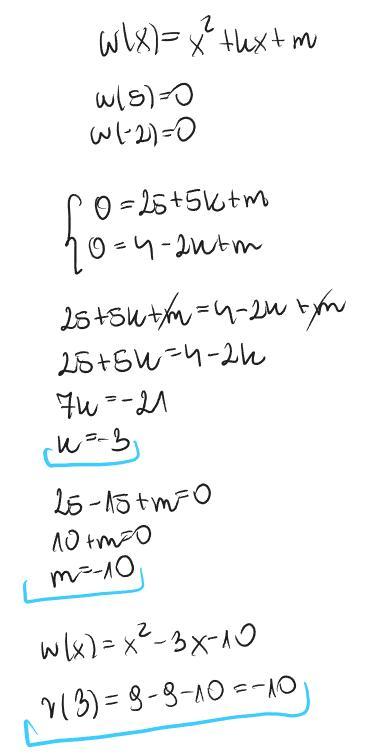 w(x)=x²+kx+m
w(5)=0
w(-2)=0
{ 0=25+5k+m
0=4-2k+m
25+5k+m=4-2k+m
25+5k=4-2k
7k=-21
k=-3
25-15+m=0
10+m=0
m=-10
w(x)=x²-3x-10
r(3)=9-9-10=-10